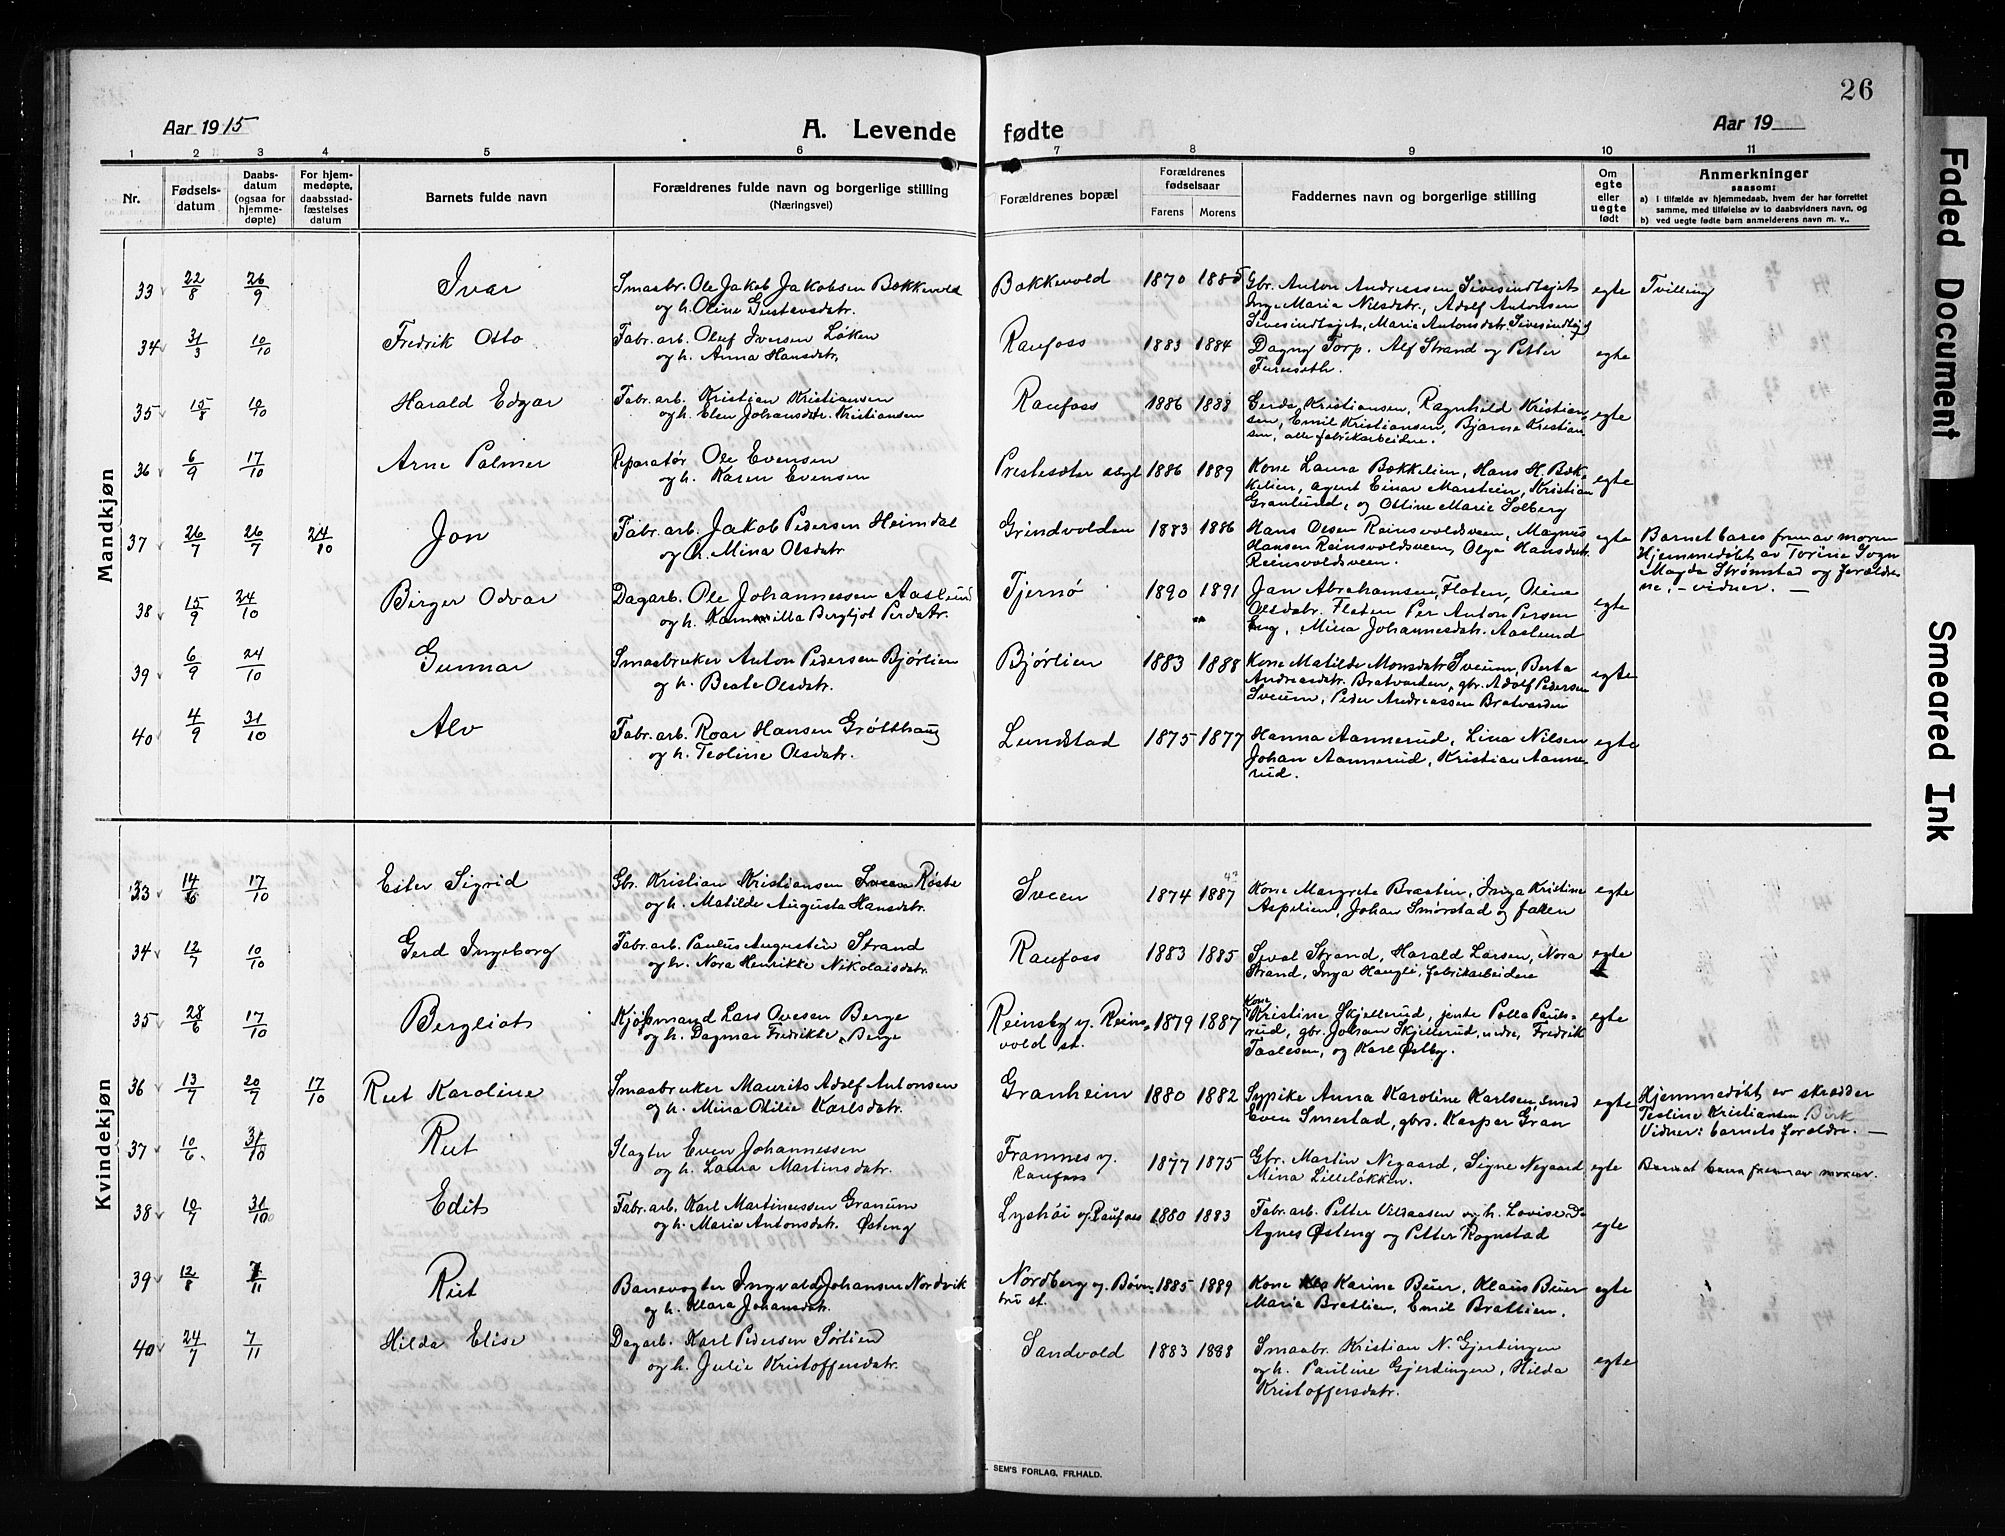 26
Aar 1915
A. Levende fødte
Aar 19
1 2 3 4 5 6 7 8 9 10 11
Nr.
Fødsels-
datum
Daabs-
datum
(ogsaa for
hjemme-
døpte)
For hjem-
medøpte,
daabsstad-
fæstelses
datum
Barnets fulde navn
Forældrenes fulde navn og borgerlige stilling
(Næringsvei)
Forældrenes bopæl
Forældrenes
fødselsaar
Farens Morens
Faddernes navn og borgerlige stilling
Om
egte
eller
uegte
født
Anmerkninger
saasom:
a) I tilfælde av hjemmedaab, hvem der har forrettet
samme, med tilføielse av to daabsvidners navn, og
b) ved uegte fødte barn anmelderens navn m. v..
Mandkjøn
33 22/8 26/9 Ivar Smaabr. Ole Jakob Jakobsen Bakkevold Bakkevold 1870 1885 Gbr. Anton Andreassen Sivesindhøjet egte Tvilling
og h. Oline Gustavsdtr. Inge Maria Nilsdtr, Adolf Antonsen
Sivesindhøjet, Marie Antonsdtr. Sivesindhøjet
34 31/3 10/10 Fredrik Otto Fabr. arb. Oluf Iversen Løken Raufoss 1883 1884 Dagny Torp. Alf Strand og Petter egte
og h. Anna Hansdtr, Furuseth.
35 15/8 10/10 Harald Edgar Fabr. arb. Kristian Kristiansen Raufoss 1886 1888 Gerda Kristiansen, Ragnhild Kristian- egte
og h. Elen Johansdtr. Kristiansen sen, Emil Kristiansen, Bjarne Kristian
sen, alle fabrikarbeidere.
36 6/9 17/10 Arne Palmer Reparatør Ole Evensen Prestesæter 1886 1889 Kone Laura Bakkelien, Hans H. Bak- egte
og h. Karen Evensen kelien, agent Einar Marstein, Kristian
Granlund, og Otline Marie Solberg
37 26/7 26/7 24/10 Jon Fabr. arb. Jakob Pedersen Heimdal Grindvolden 1883 1886 Hans Olsen Reinsvoldsveen, Magnus egte Barnet bares frem av moren
og h. Mina Olsdatr Hansen Reinsvoldsveen, Olga Hansdtr. Hjemmedøbt av Torine Sogn
Reinsvoldsveen. Magda Strømstad og forældre
ne, – vidner. —
38 15/9 24/10 Birger Odvar Dagarb. Ole Johannessen Aaslund Tjernø 1890 1891 Jan Abrahamsen, Flaten, Oline egte
og h. Kammilla Bergljot Perdatr. Olsdatr. Flaten Per Anton Persen
Eng, Mina Johannesdtr. Aaslund
39 6/9 24/10 Gunnar Smaabruker Anton Pedersen Bjørlien Bjørlien 1883 1888 Kone Matilde Monsdatr Sveum, Berta egte
og h. Beate Olsdatr. Andreasdtr. Bratvarden, gbr. Adolf Pedersen
Sveum, Peder Andreassen Bratvarden
40 4/9 31/10 Alv Fabr. arb. Roar Hansen Grøtthaug Lundstad 1875 1877 Hanna Aannerud, Lina Nilsen egte
og h. Teoline Olsdatr. Johan Aannerud, Kristian Aanne-
rud.
Kvindekjøn
33 14/6 17/10 Ester Sigrid Gbr. Kristian Kristiansen Sveen Røste Sveen 1874 1887 Kone Margrete Braaten, Inga Kristine egte
og h. Matilde Augusta Hansdatr. Aspelien, Johan Smørstad og faren
34 12/7 10/10 Gerd Ingeborg Fabr. arb. Paulus Augustin Strand Raufoss 1883 1885 Sival Strand, Harald Larsen, Nora egte
og h. Nora Henrikke Nikolaisdatr. Strand, Inga Haugli, fabrikarbeidere
35 28/6 17/10 Bergliot Kjøpmand Lars Ovesen Berge Reinsby v. Reins- 1879 1887 Kone Kristine Skjellerud, jente Palla Pauls- egte
og h. Dagmar Fredrikke Berge vold st. rud, gbr. Johan Skjellerud, nedre, Fredrik
Taalesen, og Karl Østby.
36 13/7 20/7 17/10 Rut Karoline Smaabruker Maurits Adolf Antonsen Granheim 1880 1882 Sypike Anna Karoline Karlsen, smed egte Hjemmedøbt av skrædder
og h. Mina Otilie Karlsdatr. Even Smestad, gbrs. Kasper Gran Teoline Kristiansen Birk
Vidner: barnets forældre. —
37 10/6 31/10 Rut Slagter Even Johannessen Framnes v. 1877 1875 Gbr. Martin Negaard, Signe Negaard egte Barnet bares frem av moren.
og h. Laura Martinsdatr. Raufoss Mina Lilleløkken.
38 10/7 31/10 Edit Fabr. arb. Karl Martinussen Granum Lyshøi v. Raufoss 1880 1883 Fabr. arb. Petter Vilsaasen og h. Lovise Do egte
og h. Maria Antonsdtr. Østeng Agnes Østeng og Petter Rognstad
39 12/8 7/11 Rut Banevogter Ingvald Johansen Nordvik Nordberg v. Bøver- 1885 1889 Kone Karine Beier, Klaus Beier egte
og h. Klara Johansdtr. bru st. Maria Brattlien, Emil Brattlien.
40 24/7 7/11 Hilda Elise Dagarb. Karl Pedersen Sørlien Sandvold 1883 1888 Smaabr. Kristian N. Gjerdingen egte
og h. Julie Kristoffersdatr. og h. Pauline Gjerdingen, Hilda
Kristoffersdatr.
SEM'S FORLAG, FR.HALD.
Faded Document
Smeared Ink